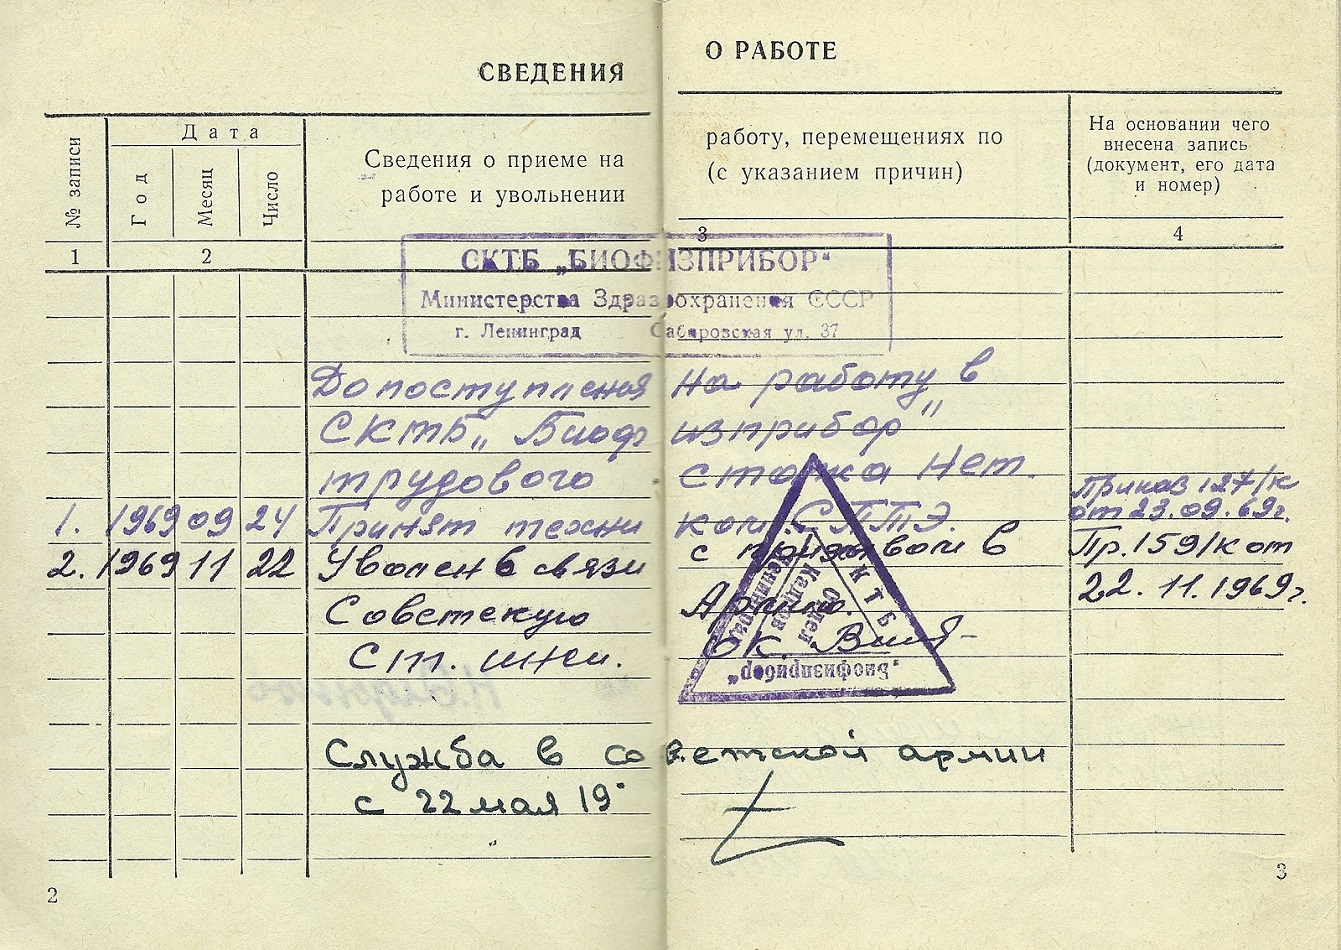 СВЕДЕНИЯ О РАБОТЕ
№ записи
Дата
Год
Месяц
Число
Сведения о приеме на работу, перемещениях по
работе и увольнении (с указанием причин)
На основании чего
внесена запись
(документ, его дата
и номер)
1 2 3 4
СКТБ „БИОФИЗПРИБОР"
Министерства Здравоохранения СССР
г. Ленинград Сабировская ул. 37
До поступления на работу в
СКТБ „Биофизприбор"
трудового стажа нет.
1. 1969 09 24 Принят техником СПТЭ. Приказ 127/к
от 23.09.69г.
2. 1969 11 22 Уволен в связи с призывом в Пр. 159/к от
Советскую Армию. 22.11.1969г.
Ст. инсп. ОК.
СКТБ
Отдел
Кадров
Ленинград
„Биофизприбор"
Служба в советской армии
с 22 мая 19
2
3